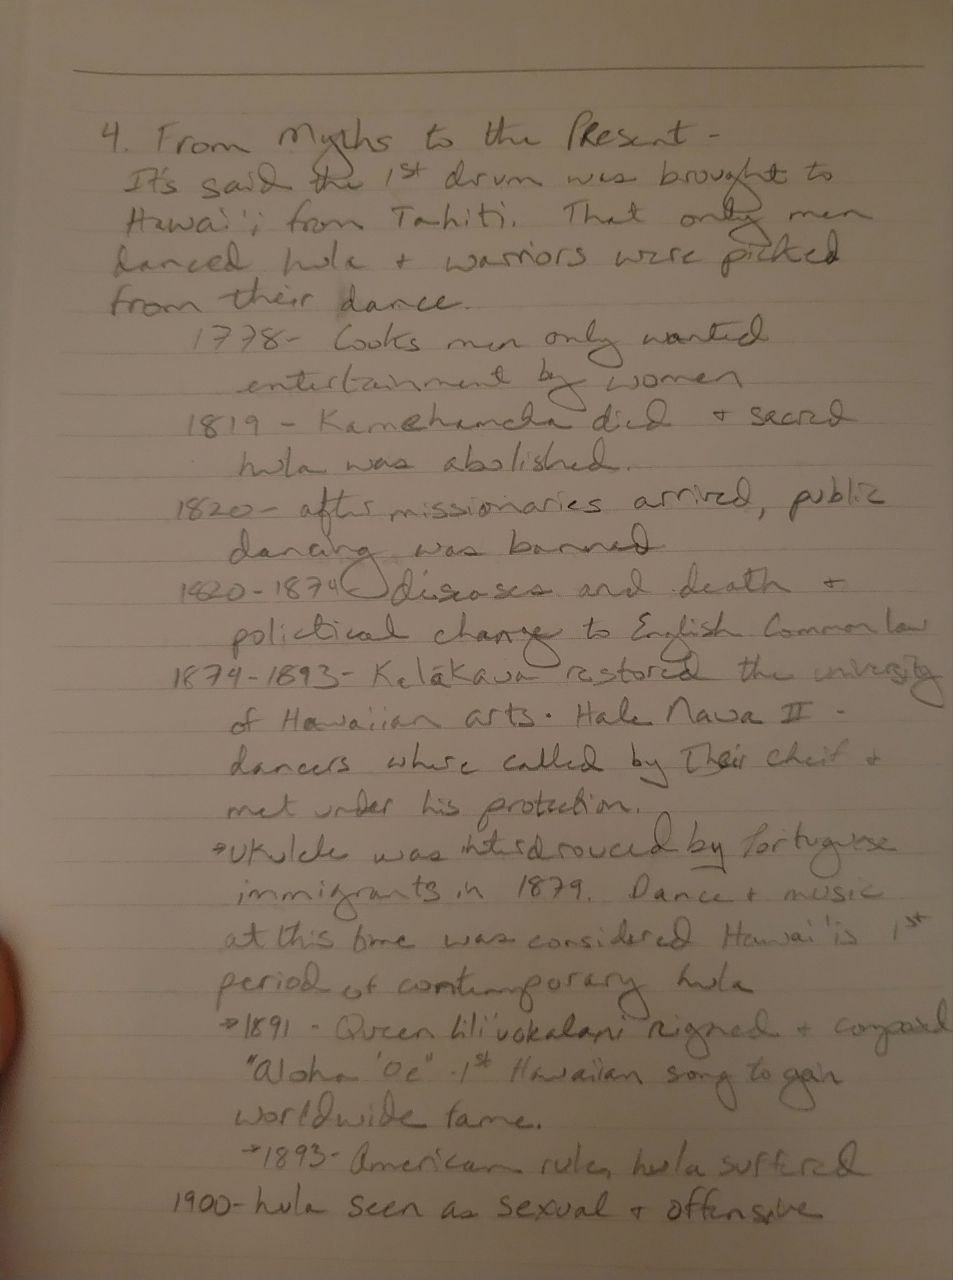 4. From Myths to the Present -
It's said the 1st drum was brought to
Hawai'i from Tahiti. That only men
danced hula + warriors were picked
from their dance.
1778- Cooks men only wanted
entertainment by women
1819 - Kamehameha died + sacred
hula was abolished.
1820- after missionaries arrived, public
dancing was banned
1820-1874 diseases and death +
polictical change to English Common law
1874-1893- Kalākaua restored the university
of Hawaiian arts. Hale Nawa II -
dancers where called by Their cheif +
met under his protection.
→ Ukulele was intedrouced by Portuguese
immigrants in 1879. Dance + music
at this time was considered Hawai'i's 1st
period of contemporary hula
→1891 - Queen Lili'uokalani rigned + composed
"Aloha 'Oe" - 1st Hawaiian song to gain
worldwide fame.
→1893- American rule, hula suffered
1900- hula seen as sexual + offensive